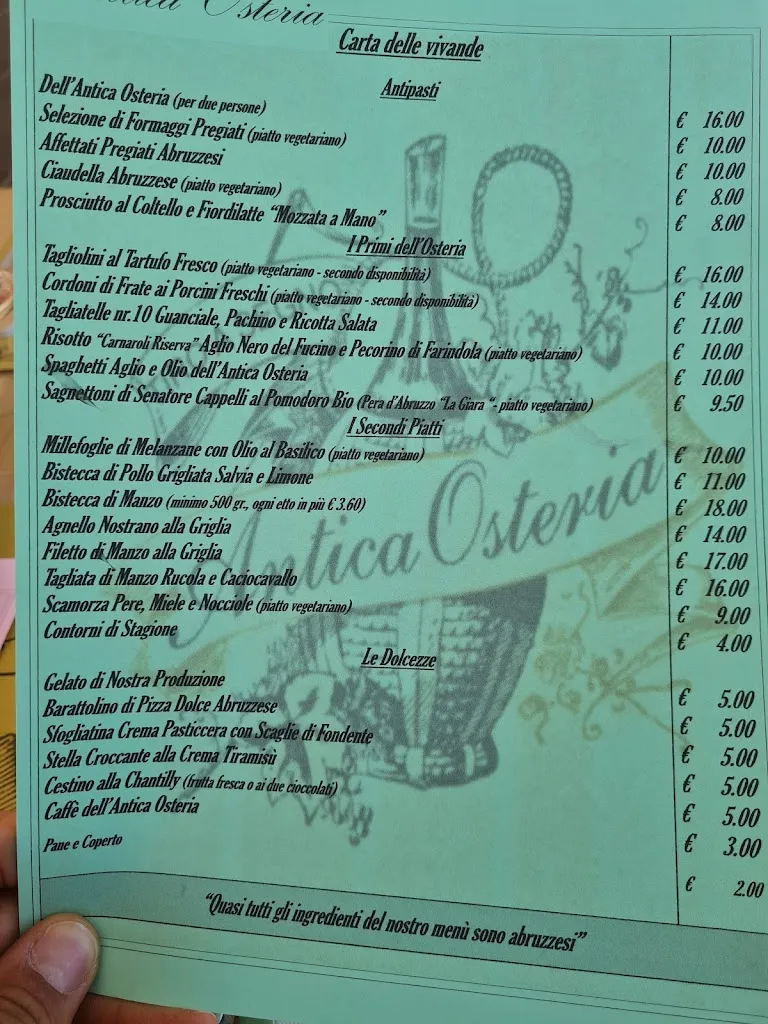 Osteria
Carta delle vivande
Antipasti
Dell'Antica Osteria (per due persone) € 16.00
Selezione di Formaggi Pregiati (piatto vegetariano) € 10.00
Affettati Pregiati Abruzzesi € 10.00
Ciaudella Abruzzese (piatto vegetariano) € 8.00
Prosciutto al Coltello e Fiordilatte "Mozzata a Mano" € 8.00
I Primi dell'Osteria
Tagliolini al Tartufo Fresco (piatto vegetariano - secondo disponibilità) € 16.00
Cordoni di Frate ai Porcini Freschi (piatto vegetariano - secondo disponibilità) € 14.00
Tagliatelle nr.10 Guanciale, Pachino e Ricotta Salata € 11.00
Risotto "Carnaroli Riserva" Aglio Nero del Fucino e Pecorino di Farindola (piatto vegetariano) € 10.00
Spaghetti Aglio e Olio dell'Antica Osteria € 10.00
Sagnettoni di Senatore Cappelli al Pomodoro Bio (Pera d'Abruzzo "La Giara "- piatto vegetariano) € 9.50
I Secondi Piatti
Millefoglie di Melanzane con Olio al Basilico (piatto vegetariano) € 10.00
Bistecca di Pollo Grigliata Salvia e Limone € 11.00
Bistecca di Manzo (minimo 500 gr., ogni etto in più € 3.60) € 18.00
Agnello Nostrano alla Griglia € 14.00
Filetto di Manzo alla Griglia € 17.00
Tagliata di Manzo Rucola e Caciocavallo € 16.00
Scamorza Pere, Miele e Nocciole (piatto vegetariano) € 9.00
Contorni di Stagione € 4.00
Antica Osteria
Le Dolcezze
Gelato di Nostra Produzione € 5.00
Barattolino di Pizza Dolce Abruzzese € 5.00
Sfogliatina Crema Pasticcera con Scaglie di Fondente € 5.00
Stella Croccante alla Crema Tiramisù € 5.00
Cestino alla Chantilly (frutta fresca o ai due cioccolati) € 5.00
Caffè dell'Antica Osteria € 3.00
Pane e Coperto € 2.00
"Quasi tutti gli ingredienti del nostro menù sono abruzzesi"